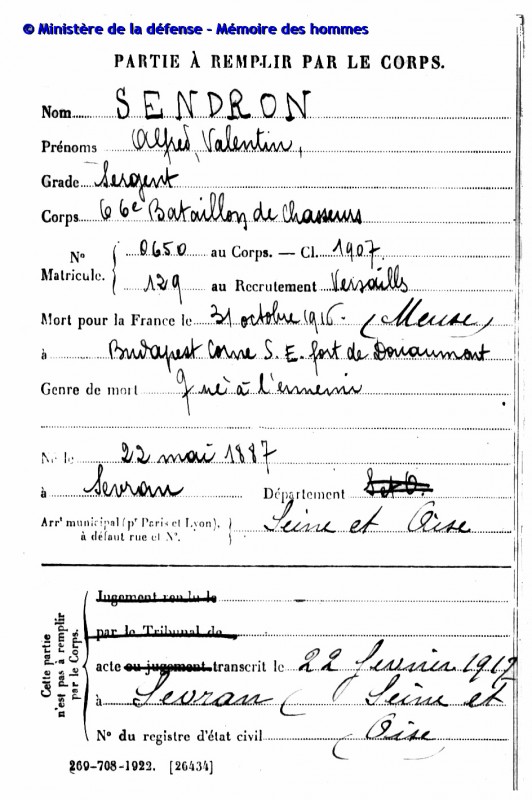 © Ministère de la défense - Mémoire des hommes
PARTIE À REMPLIR PAR LE CORPS.
Nom SENDRON
Prénoms Alfred, Valentin,
Grade Sergent
Corps 66e Bataillon de Chasseurs
N° Matricule. 0650 au Corps. — Cl. 1907
129 au Recrutement Versailles
Mort pour la France le 31 octobre 1916. (Meuse)
à Budapest Corne S. E. fort de Douaumont
Genre de mort Tué à l'ennemi
Né le 22 mai 1887
à Sevran Département S et O.
Arrt municipal (pr Paris et Lyon), à défaut rue et N°. Seine et Oise
Cette partie n'est pas à remplir par le Corps.
Jugement rendu le
par le Tribunal de
acte ou jugement transcrit le 22 fevrier 1917
à Sevran (Seine et
N° du registre d'état civil Oise
269-708-1922. [26434]